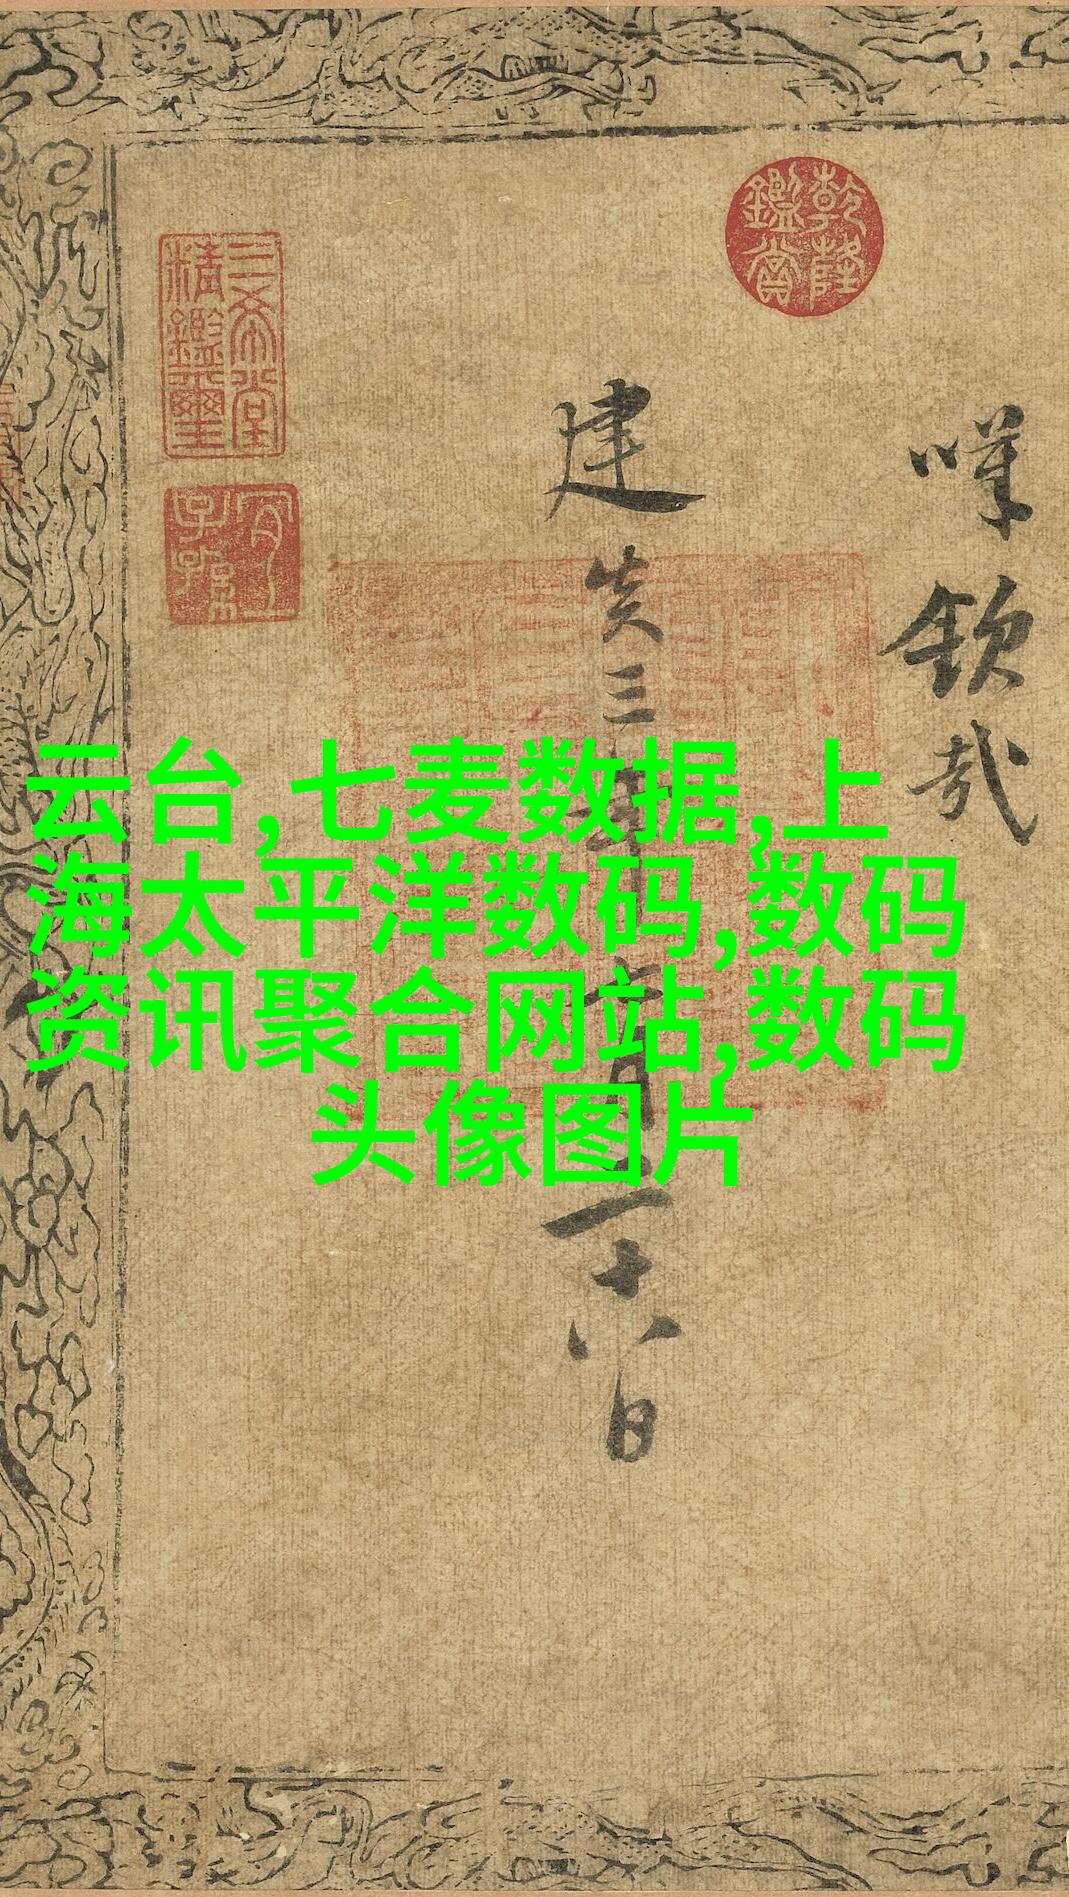 乾隆鑑賞
三希堂精鑑璽
宜子孫
欽哉
建炎三年七月二十八日
云台,七麦数据,上
海太平洋数码,数码
资讯聚合网站,数码
头像图片